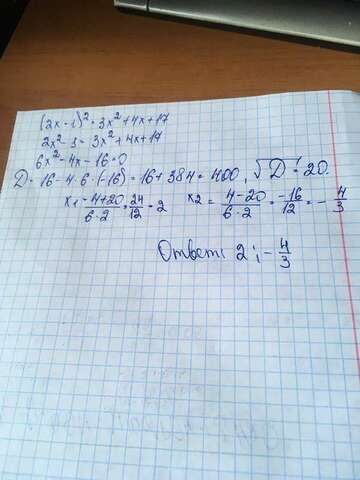 (2x-1)² = 3x²+4x+17
2x²-1 = 3x²+4x+17
6x²-4x-16=0
D = 16-4·6·(-16) = 16+384 = 400, √D = 20.
x₁ = 4+20/6·2 = 24/12 = 2 x₂ = 4-20/6·2 = -16/12 = -4/3
Ответ: 2 ; -4/3